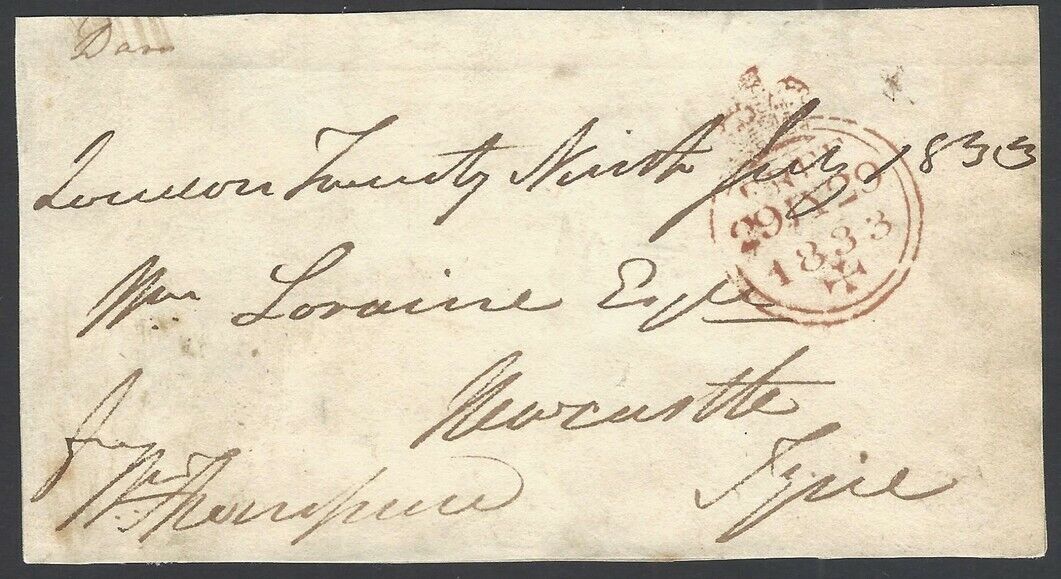 London Twenty Ninth July 1833
Wm Loraine Esqre
Newcastle
Tyne
free
Wm Thompson
FREE
29 JY 29
1833